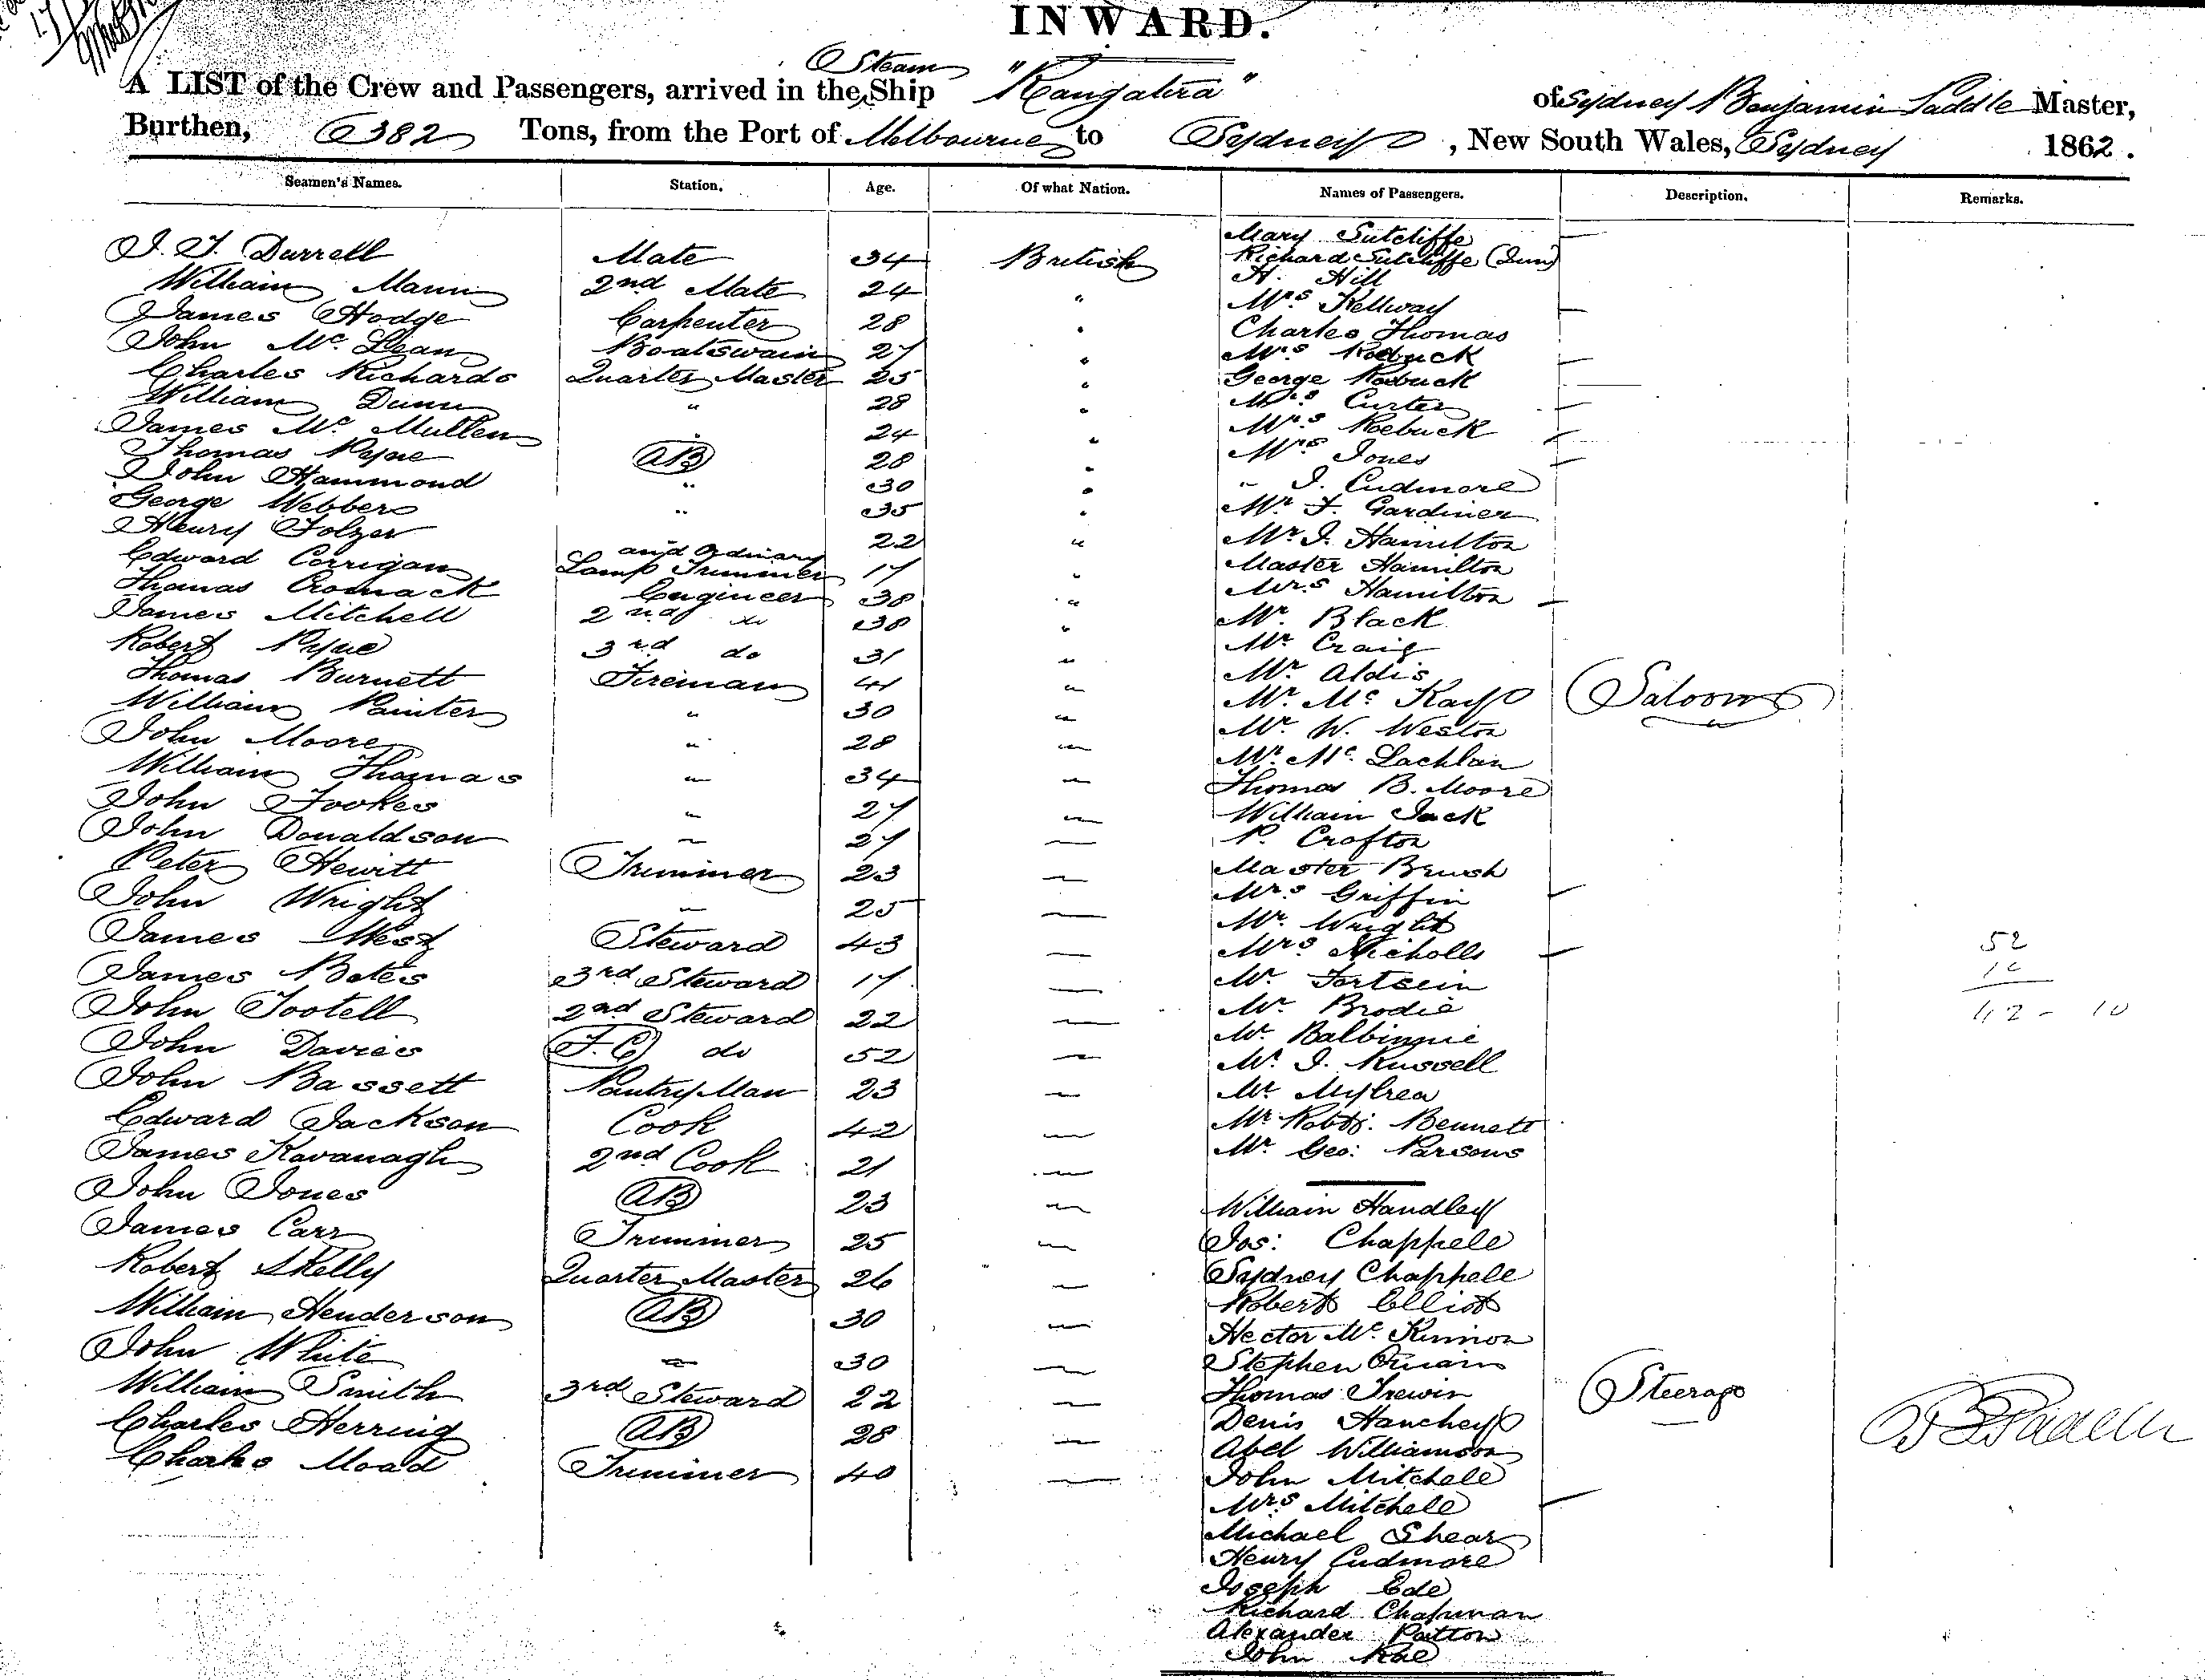 INWARD.
Steam
A LIST of the Crew and Passengers, arrived in the Ship "Rangatira" of Sydney Benjamin Paddle Master,
Burthen, 382 Tons, from the Port of Melbourne to Sydney, New South Wales, Sydney 1862.
Seamen's Names. Station. Age. Of what Nation. Names of Passengers. Description. Remarks.
Mary Sutcliffe —
J. T. Durrell Mate 34 British Richard Sutcliffe (Jun)
William Mann 2nd Mate 24 " H. Hill
James Hodge Carpenter 28 " Mrs Kellway —
John Mc Lean Boatswain 27 " Charles Thomas
Charles Richards Quarter Master 25 " Mrs Roebuck —
William Dunn " 28 " George Roebuck —
James Mc Mullen " 24 " Mrs Curtes —
Thomas Pyne AB 28 " Mrs Roebuck —
John Hammond " 30 " Mrs Jones —
George Webber " 35 " " J. Cudmore
Henry Folzer 22 " Mr F. Gardiner
Edward Corrigan and Ordinary Lamp Trimmer 17 " Mr J. Hamilton
Thomas Cromack Engineer 38 " Master Hamilton
James Mitchell 2nd do 38 " Mrs Hamilton —
Robert Pyne 3rd do 31 " Mr. Black
Thomas Burnett Fireman 41 " Mr Craig
William Painter " 30 " Mr. Aldis
John Moore " 28 " Mr. Mc Kay Saloon
William Thomas " 34 " Mr. W. Weston
John Fookes " 27 " Mr. Mc. Lachlan
John Donaldson " 27 " Thomas B. Moore
Peter Hewitt Trimmer 23 " William Jack
John Wright " 25 " P. Crofton
James West Steward 43 " Master Brush
James Bates 3rd Steward 17 " Mrs Griffin —
John Tootell 2nd Steward 22 " Mr. Wright
John Davies F.C do 52 " Mrs. Nicholls — 52
John Bassett Pantry Man 23 " Mr. 10
Edward Jackson Cook 42 " Mr. Brodie 42 - 10
James Kavanagh 2nd Cook 21 " Mr. Balbinnie
John Jones AB 23 " Mr. J. Russell
James Carr Trimmer 25 " Mr Mylrea
Robert Skelly Quarter Master 26 " Mr Robt: Bennett
William Henderson AB 30 " Mr. Geo: Parsons
John White " 30 " William Handley
William Smith 3rd Steward 22 " Jos: Chappele
Charles Herring AB 28 " Sydney Chappele
Charles Moad Trimmer 40 " Robert Elliot
Hector Mc. Kinnon
Stephen
Thomas Trewin Steerage
Denis Hanchey
Abel Williamson
John Mitchele
Mrs Mitchele —
Michael Shear
Henry Cudmore
Joseph Ede
Richard Chapman
Alexander Patton
John Rae